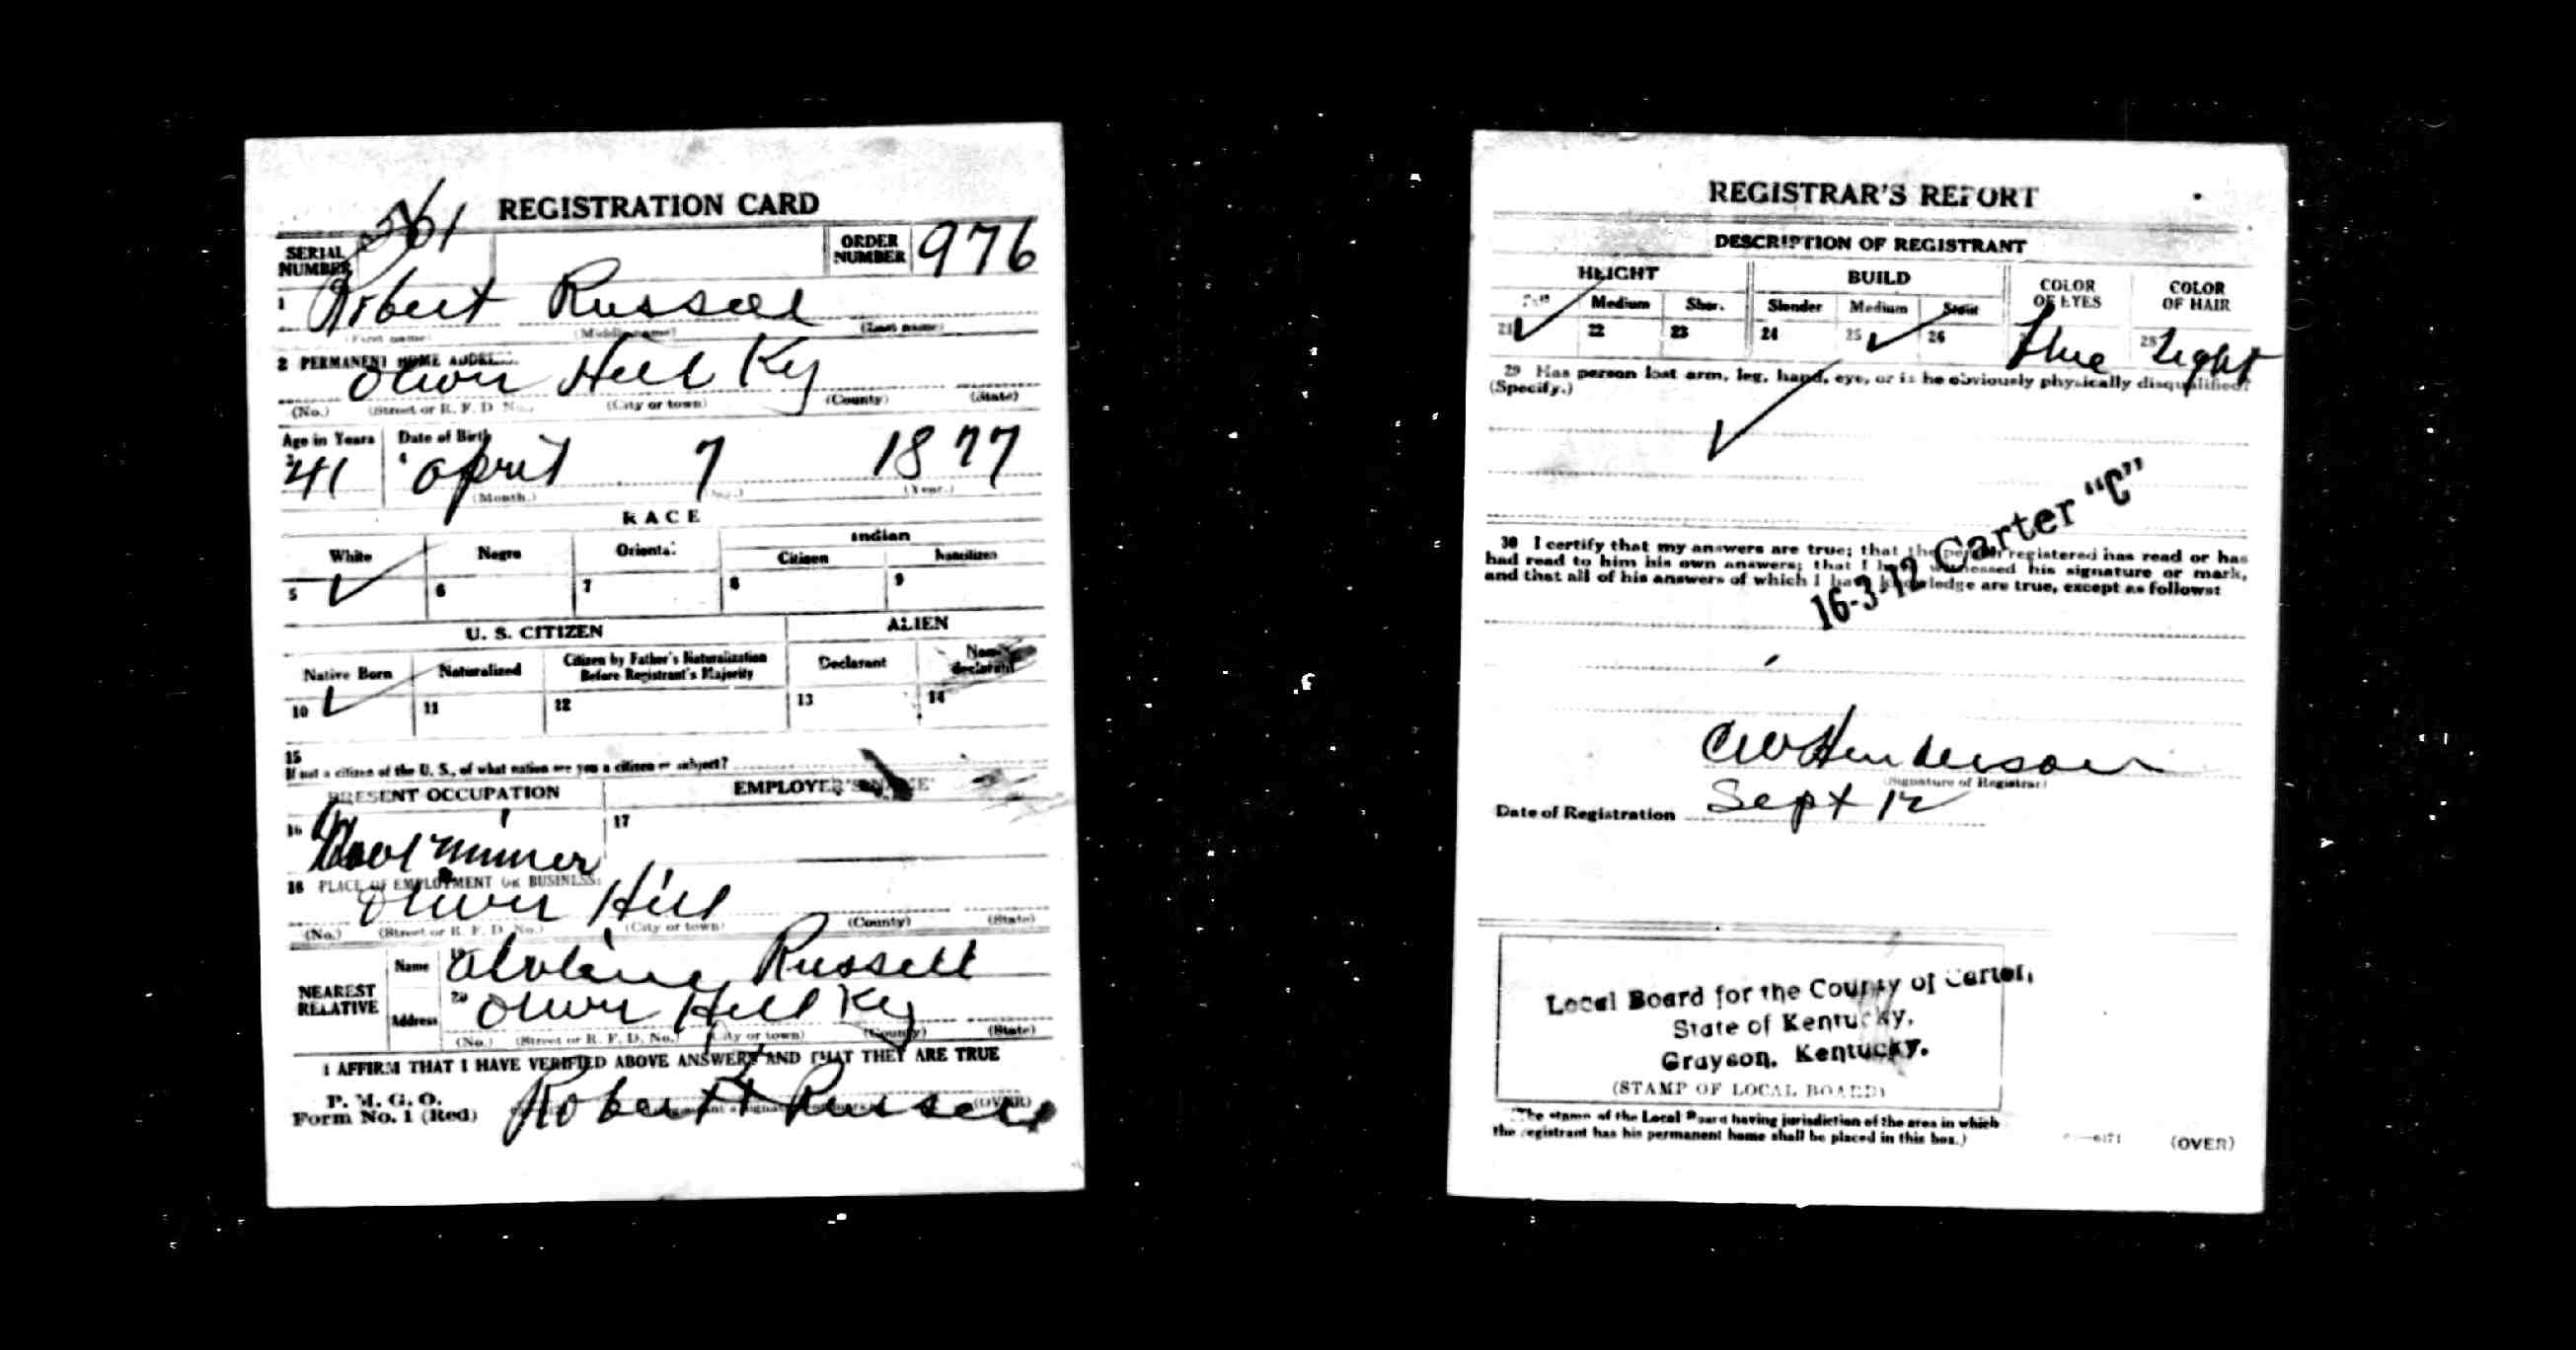 REGISTRATION CARD
SERIAL NUMBER 561 ORDER NUMBER 976
1 Robert Russell
(First name) (Middle name) (Last name)
2 PERMANENT HOME ADDRESS
Oliver Hill Ky
(No.) (Street or R. F. D. No.) (City or town) (County) (State)
Age in Years Date of Birth
3 41 4 April 7 1877
(Month.) (Day.) (Year.)
RACE
White Negro Oriental Indian
Citizen Noncitizen
5 ✓ 6 7 8 9
U. S. CITIZEN ALIEN
Native Born Naturalized Citizen by Father's Naturalization Before Registrant's Majority Declarant Non-declarant
10 ✓ 11 12 13 14
15
If not a citizen of the U. S., of what nation are you a citizen or subject?
PRESENT OCCUPATION EMPLOYER'S NAME
16 miner 17
18 PLACE OF EMPLOYMENT OR BUSINESS:
Oliver Hill
(No.) (Street or R. F. D. No.) (City or town) (County) (State)
NEAREST RELATIVE Name 19 Russell
Address 20 Oliver Hill Ky
(No.) (Street or R. F. D. No.) (City or town) (County) (State)
I AFFIRM THAT I HAVE VERIFIED ABOVE ANSWERS AND THAT THEY ARE TRUE
P. M. G. O.
Form No. 1 (Red) Robert Russell (OVER)
REGISTRAR'S REPORT
DESCRIPTION OF REGISTRANT
HEIGHT BUILD COLOR OF EYES COLOR OF HAIR
Tall Medium Short Slender Medium Stout
21 ✓ 22 23 24 25 ✓ 26 blue 28 Light
29 Has person lost arm, leg, hand, eye, or is he obviously physically disqualified?
(Specify.)
✓
16-3-12 Carter "C"
30 I certify that my answers are true; that the person registered has read or has
had read to him his own answers; that I have witnessed his signature or mark,
and that all of his answers of which I have knowledge are true, except as follows:
CW Henderson
(Signature of Registrar)
Date of Registration Sept 12
Local Board for the County of Carter,
State of Kentucky,
Grayson, Kentucky.
(STAMP OF LOCAL BOARD)
(The stamp of the Local Board having jurisdiction of the area in which
the registrant has his permanent home shall be placed in this box.)
(OVER)